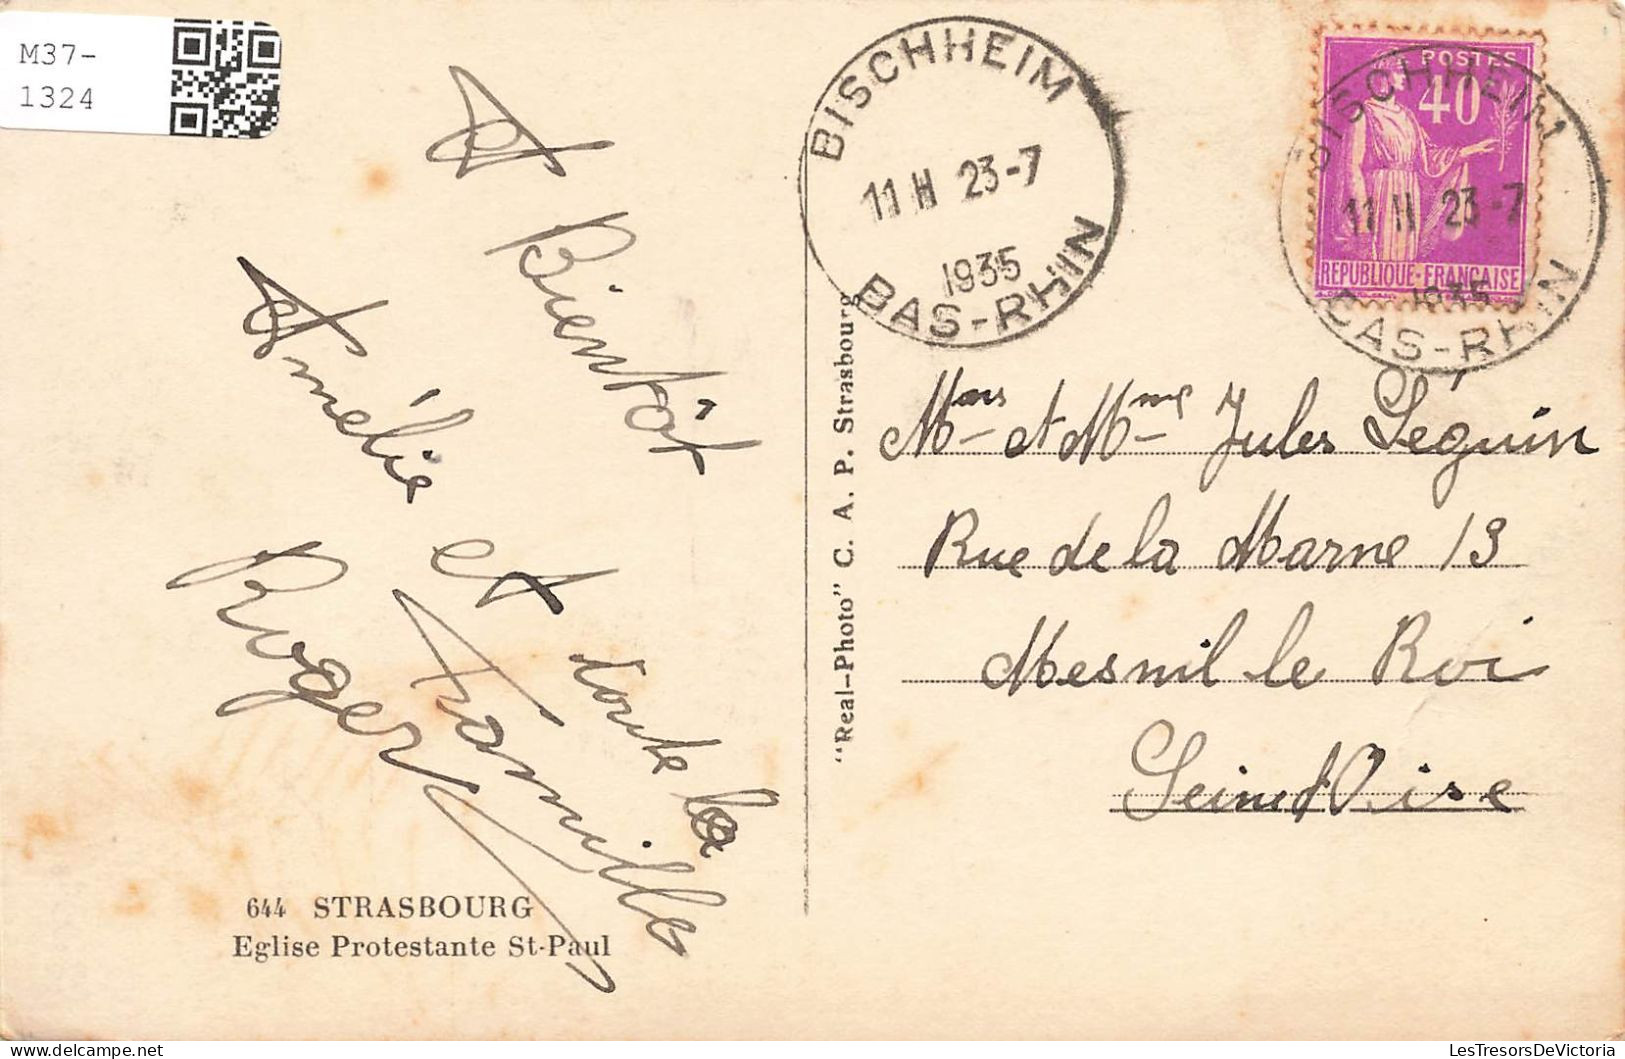 M37-
1324
A Bientôt
Amélie et toute la
Roger Famille
644 STRASBOURG
Eglise Protestante St-Paul
"Real-Photo" C. A. P. Strasbourg
BISCHHEIM
11 H 23-7
1935
BAS-RHIN
POSTES
40
REPUBLIQUE-FRANÇAISE
BISCHHEIM
11 H 23-7
1935
BAS-RHIN
et Mme Jules Léguin
Rue de la Marne 13
Mesnil le Roi
Seine d'Oise
LesTresorsDeVictoria